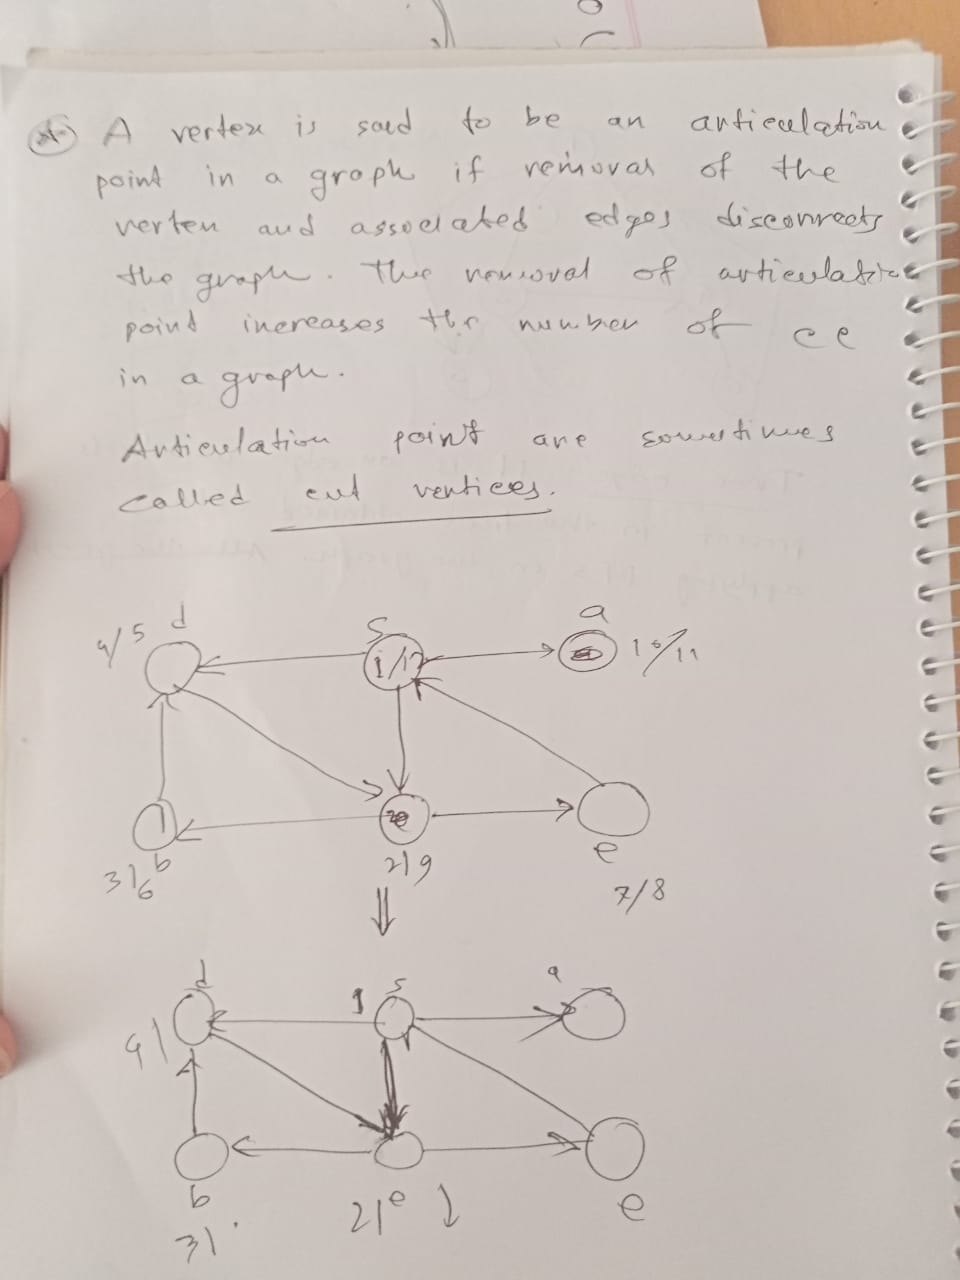 A vertex is said to be an articulation
point in a graph if removal of the
vertex and associated edges disconnects
the graph. The removal of articulation
point increases the number of cc
in a graph.
Articulation point are sometimes
called cut vertices.
4/5 d S a
1/12 10/11
b e
3/6 2/9
7/8
d s a
4/ 1
b e
3/ 2/